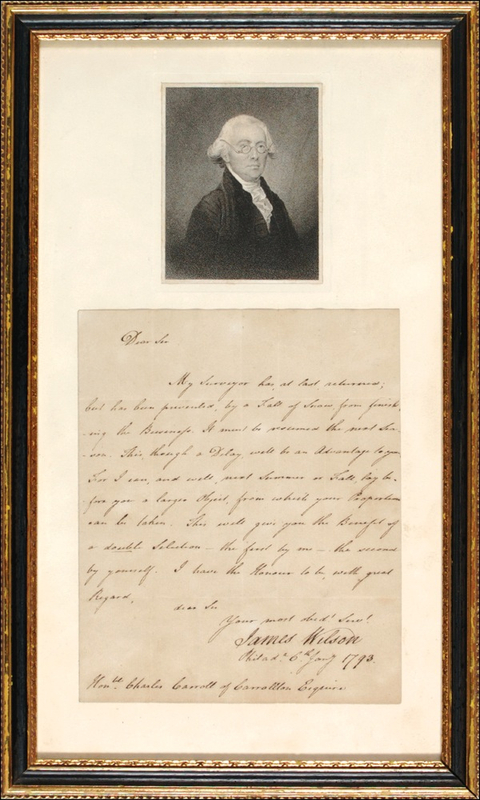 Dear Sir
My Surveyor has at last returned;
but has been prevented, by a Fall of Snow from finish-
ing the Business. It must be resumed the next Sea-
son. This, though a Delay, will be an Advantage to you.
For I can, and will, next Summer or Fall, lay be-
fore you a larger Object, from which your Proportion
can be taken. This will give you the Benefit of
a double Selection — the first by me — the second
by yourself. I have the Honour to be, with great
Regard,
dear Sir
Your most obed.t Serv.t
James Wilson
Philad.a 6.th Jan.y 1793.
Hon.ble Charles Carroll of Carrollton Esquire